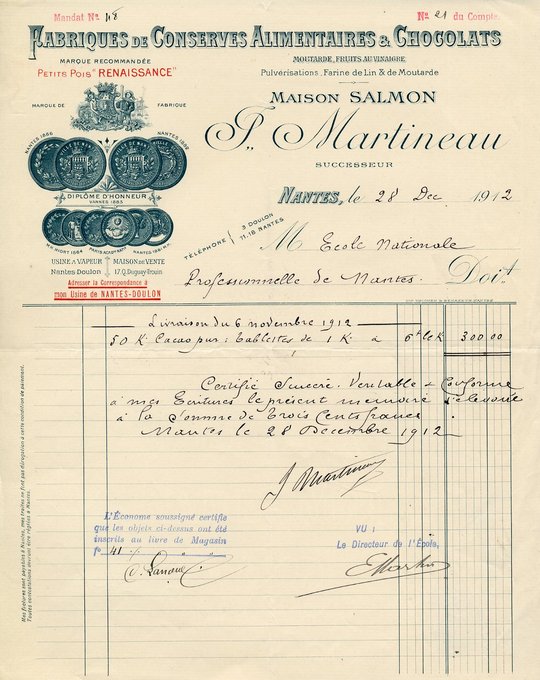 Mandat No 118
No 21 du Compte.
FABRIQUES DE CONSERVES ALIMENTAIRES & CHOCOLATS
MARQUE RECOMMANDÉE
PETITS POIS "RENAISSANCE"
MOUTARDE, FRUITS AU VINAIGRE
Pulvérisations, Farine de Lin & de Moutarde
MAISON SALMON
MARQUE DE FABRIQUE
F. Martineau
SUCCESSEUR
NANTES 1866
DIPLÔME D'HONNEUR
VANNES 1883
NANTES, le 28 Dec 1912
TÉLÉPHONE
3 DOULON
11.18 NANTES
USINE A VAPEUR
Nantes Doulon
MAISON DE VENTE
17, Q. Duguay-Trouin
Adresser la Correspondance à
mon Usine de NANTES-DOULON
M Ecole Nationale
Professionnelle de Nantes. Doit
Livraison du 6 novembre 1912
50 K. Cacao pur : tablettes de 1 K. a 6f le K 300 00
Certifié Sincère. Veritable & Conforme
à mes Ecritures le présent memoire s'elevant
à la Somme de Trois Cents francs
Nantes le 28 Decembre 1912
L'Économe soussigné certifie
que les objets ci-dessus ont été
inscrits au livre de Magasin
fo 41
VU :
Le Directeur de l'École,
Mes factures sont payables à Nantes, mes traites ne font pas dérogation à cette condition de paiement.
Toutes contestations devront être réglées à Nantes.